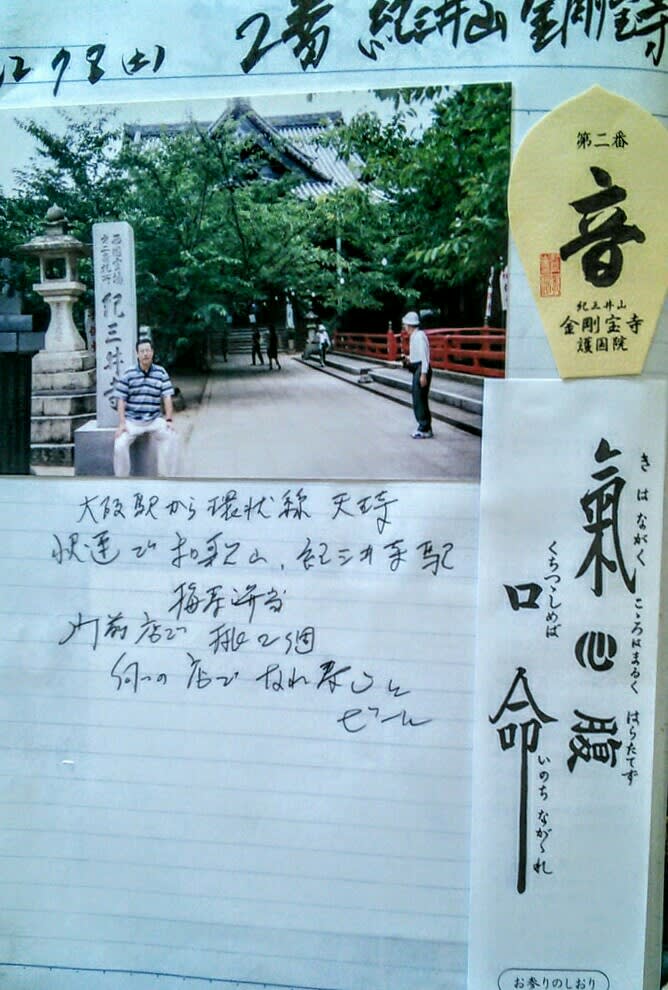 2番 紀三井山 金剛宝寺
西国霊場
第二番札所
紀三井寺
第二番
音
紀三井山
金剛宝寺
護国院
大阪駅から環状線 天王寺
快速で和歌山、紀三井寺駅
門前店で 桃2個
店で なれ寿しと
ビール
氣
きはながく
心
こゝろはまるく
腹
はらたてず
口
くちつゝしめば
命
いのちながゝれ
お参りのしおり